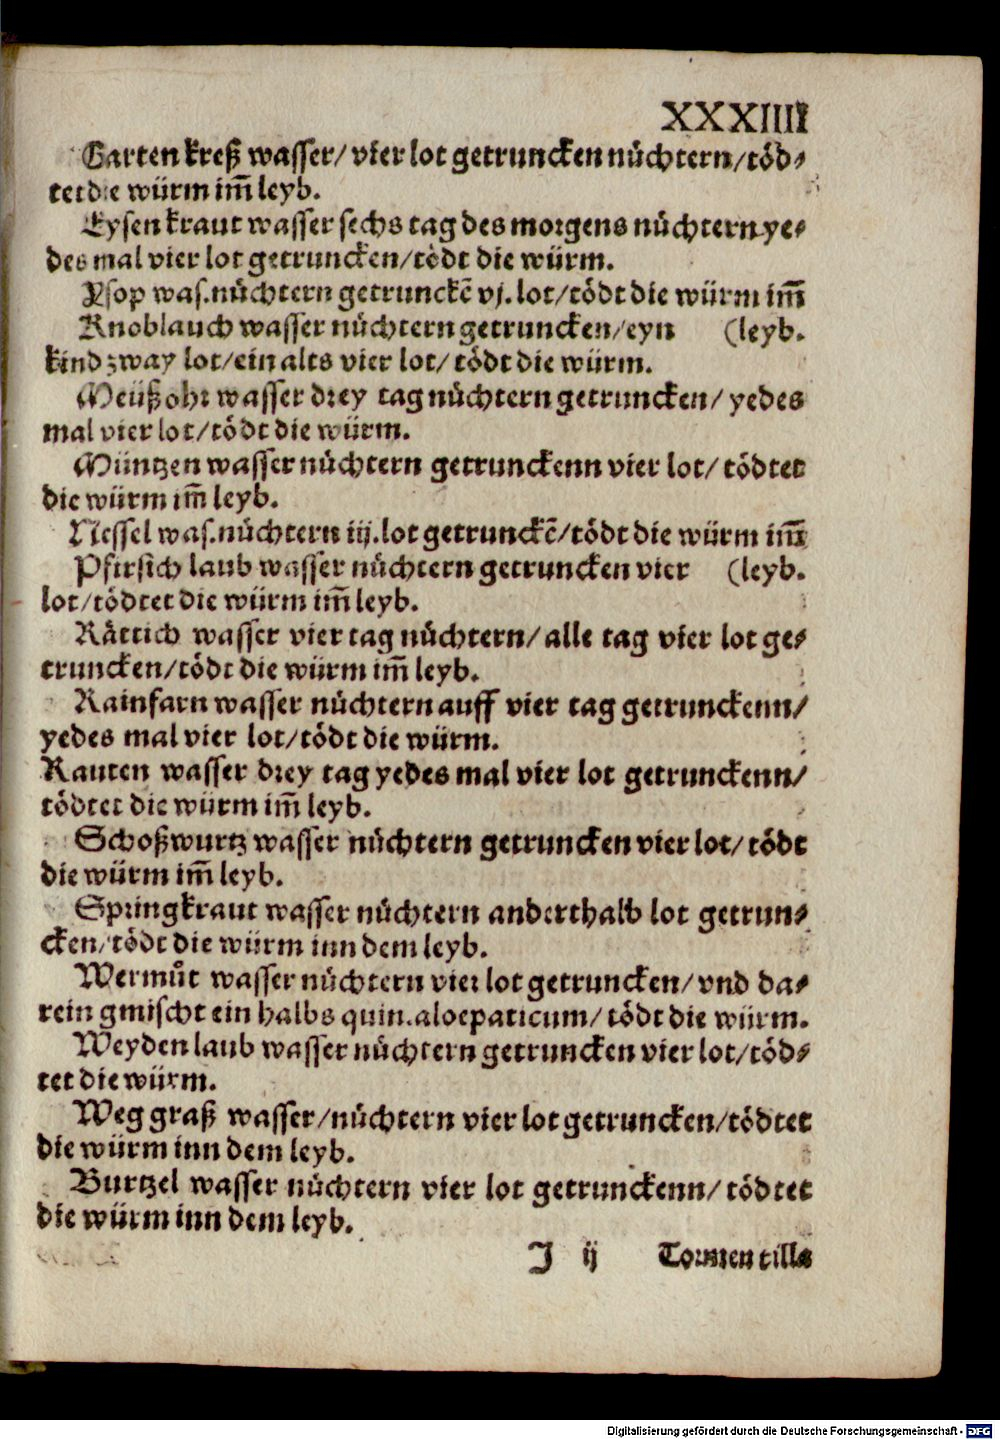 XXXIIII
Garten kreß wasser/ vier lot getruncken nüchtern/töd-
tet die würm im̃ leyb.
Eysen kraut wasser sechs tag des morgens nüchtern ye-
des mal vier lot getruncken/tödt die würm.
Ysop was.nüchtern getrunckẽ vj.lot/tödt die würm im̃
Knoblauch wasser nüchtern getruncken/eyn (leyb.
kind zway lot/ein alts vier lot/ tödt die würm.
Meüßohr wasser drey tag nüchtern getruncken/ yedes
mal vier lot/tödt die würm.
Müntzen wasser nüchtern getrunckenn vier lot/ tödtet
die würm im̃ leyb.
Nessel was.nüchtern iij.lot getrunckẽ/tödt die würm im̃
Pfirsich laub wasser nüchtern getruncken vier (leyb.
lot/tödtet die würm im̃ leyb.
Rättich wasser vier tag nüchtern/ alle tag vier lot ge-
truncken/tödt die würm im̃ leyb.
Rainfarn wasser nüchtern auff vier tag getrunckenn/
yedes mal vier lot/tödt die würm.
Rauten wasser drey tag yedes mal vier lot getrunckenn/
tödtet die würm im̃ leyb.
Schoßwurtz wasser nüchtern getruncken vier lot/ tödt
die würm im̃ leyb.
Springkraut wasser nüchtern anderthalb lot getrun-
cken/tödt die würm inn dem leyb.
Wermůt wasser nüchtern vier lot getruncken/ vnd da-
rein gmischt ein halbs quin.aloepaticum/ tödt die würm.
Weyden laub wasser nüchtern getruncken vier lot/töd-
tet die würm.
Weg graß wasser/nüchtern vier lot getruncken/tödtet
die würm inn dem leyb.
Burtzel wasser nüchtern vier lot getrunckenn/ tödtet
die würm inn dem leyb.
J ij Tormentilla
Digitalisierung gefördert durch die Deutsche Forschungsgemeinschaft - DFG